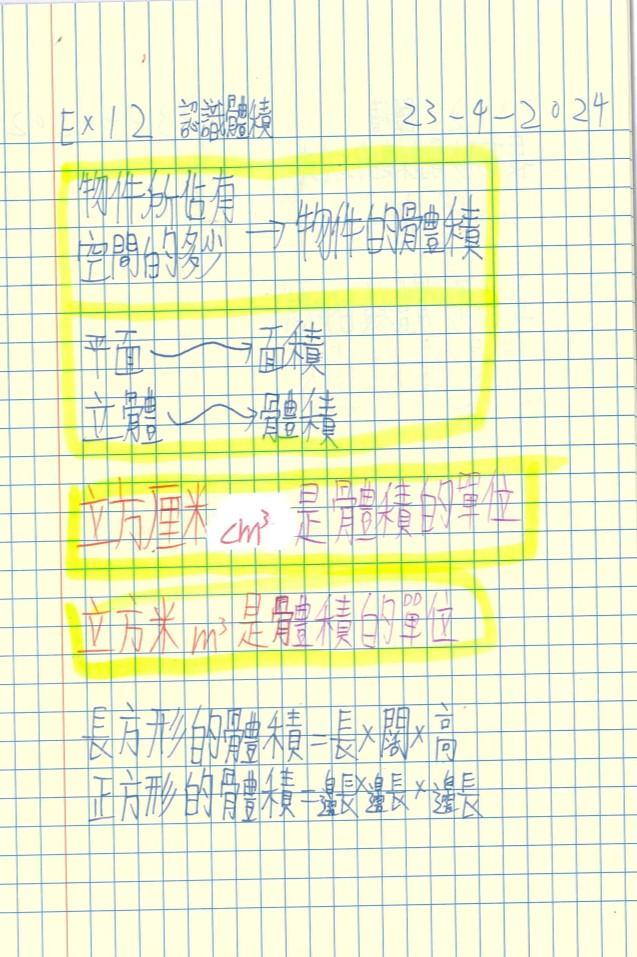 Ex12 認識體積 23-4-2024
物件所佔有
空間的多少 → 物件的體積
平面 → 面積
立體 → 體積
立方厘米 cm³ 是體積的單位
立方米 m³ 是體積的單位
長方形的體積=長×闊×高
正方形的體積=邊長×邊長×邊長